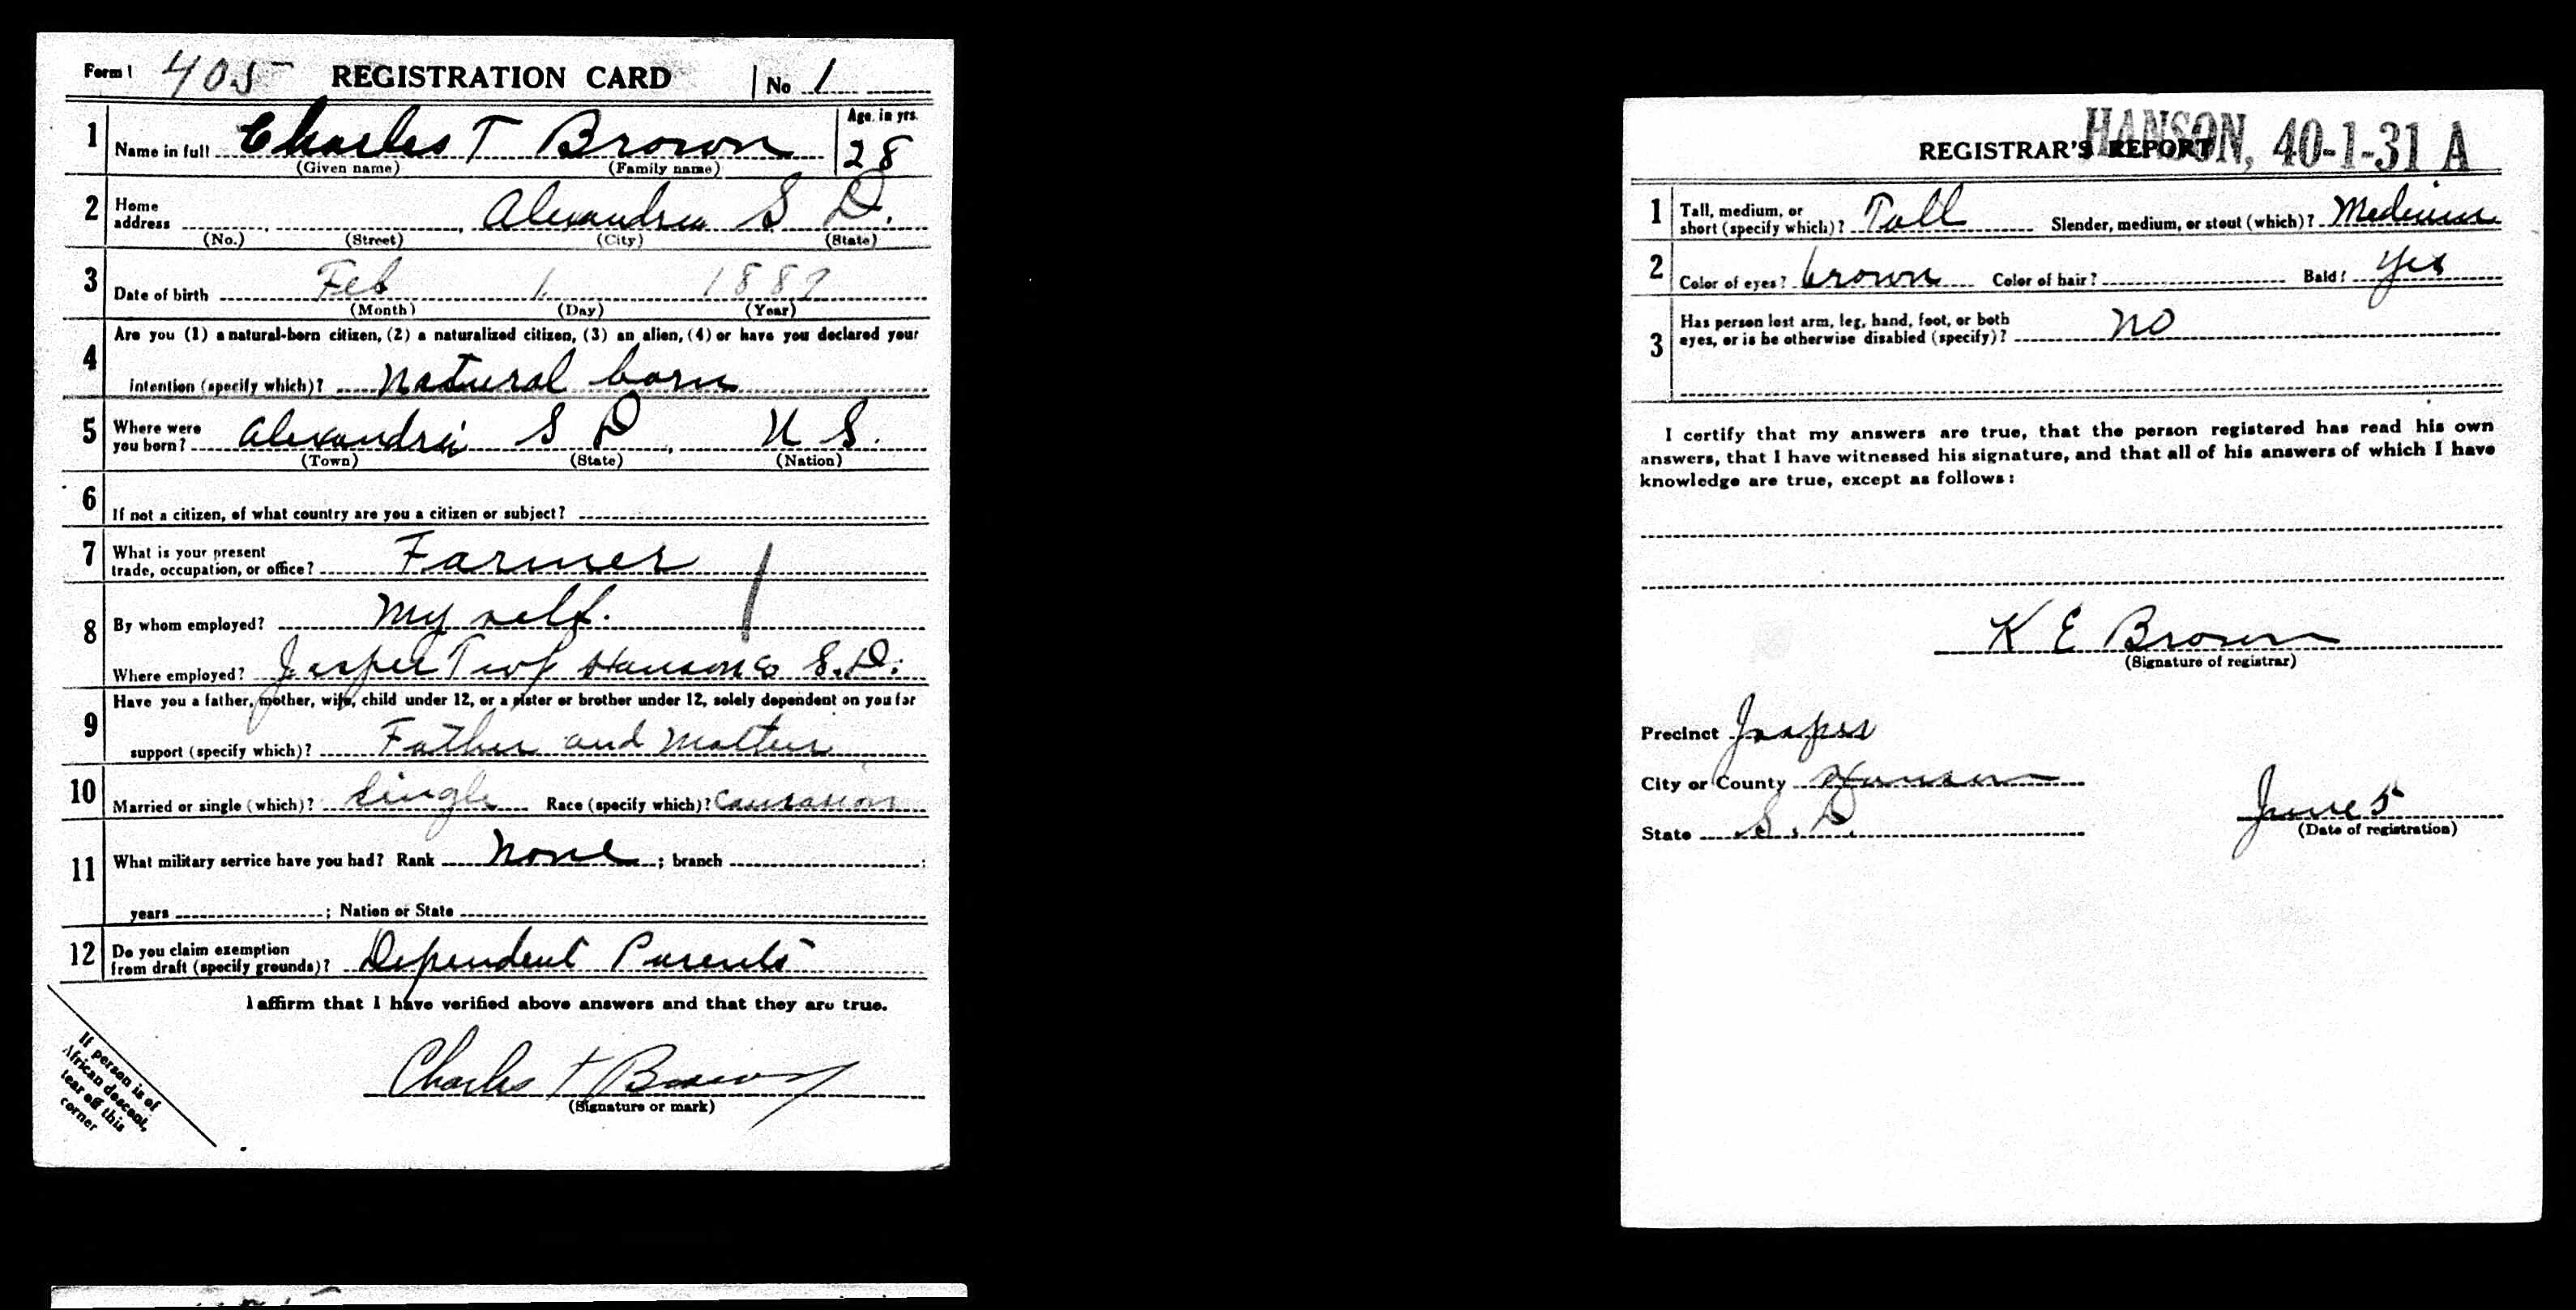 Form 1 405 REGISTRATION CARD No 1
1 Name in full Charles T Brown Age, in yrs. 28
(Given name) (Family name)
2 Home address Alexandria S D.
(No.) (Street) (City) (State)
3 Date of birth Feb 1 1889
(Month) (Day) (Year)
4 Are you (1) a natural-born citizen, (2) a naturalized citizen, (3) an alien, (4) or have you declared your
intention (specify which)? Natural born
5 Where were you born? Alexandria S D, U S.
(Town) (State) (Nation)
6 If not a citizen, of what country are you a citizen or subject?
7 What is your present trade, occupation, or office? Farmer
8 By whom employed? My self.
Where employed? Jasper Twp Hanson Co S.D.
9 Have you a father, mother, wife, child under 12, or a sister or brother under 12, solely dependent on you for
support (specify which)? Father and Mother
10 Married or single (which)? Single Race (specify which)? Caucasian
11 What military service have you had? Rank None ; branch ;
years ; Nation or State
12 Do you claim exemption from draft (specify grounds)? Dependent Parents
I affirm that I have verified above answers and that they are true.
Charles T Brown
(Signature or mark)
If person is of
African descent,
tear off this
corner
HANSON, 40-1-31 A
REGISTRAR'S REPORT
1 Tall, medium, or short (specify which)? Tall Slender, medium, or stout (which)? Medium
2 Color of eyes? brown Color of hair? Bald? yes
3 Has person lost arm, leg, hand, foot, or both
eyes, or is he otherwise disabled (specify)? no
I certify that my answers are true, that the person registered has read his own
answers, that I have witnessed his signature, and that all of his answers of which I have
knowledge are true, except as follows:
K E Brown
(Signature of registrar)
Precinct Jasper
City or County Hanson
State S. D.
June 5
(Date of registration)